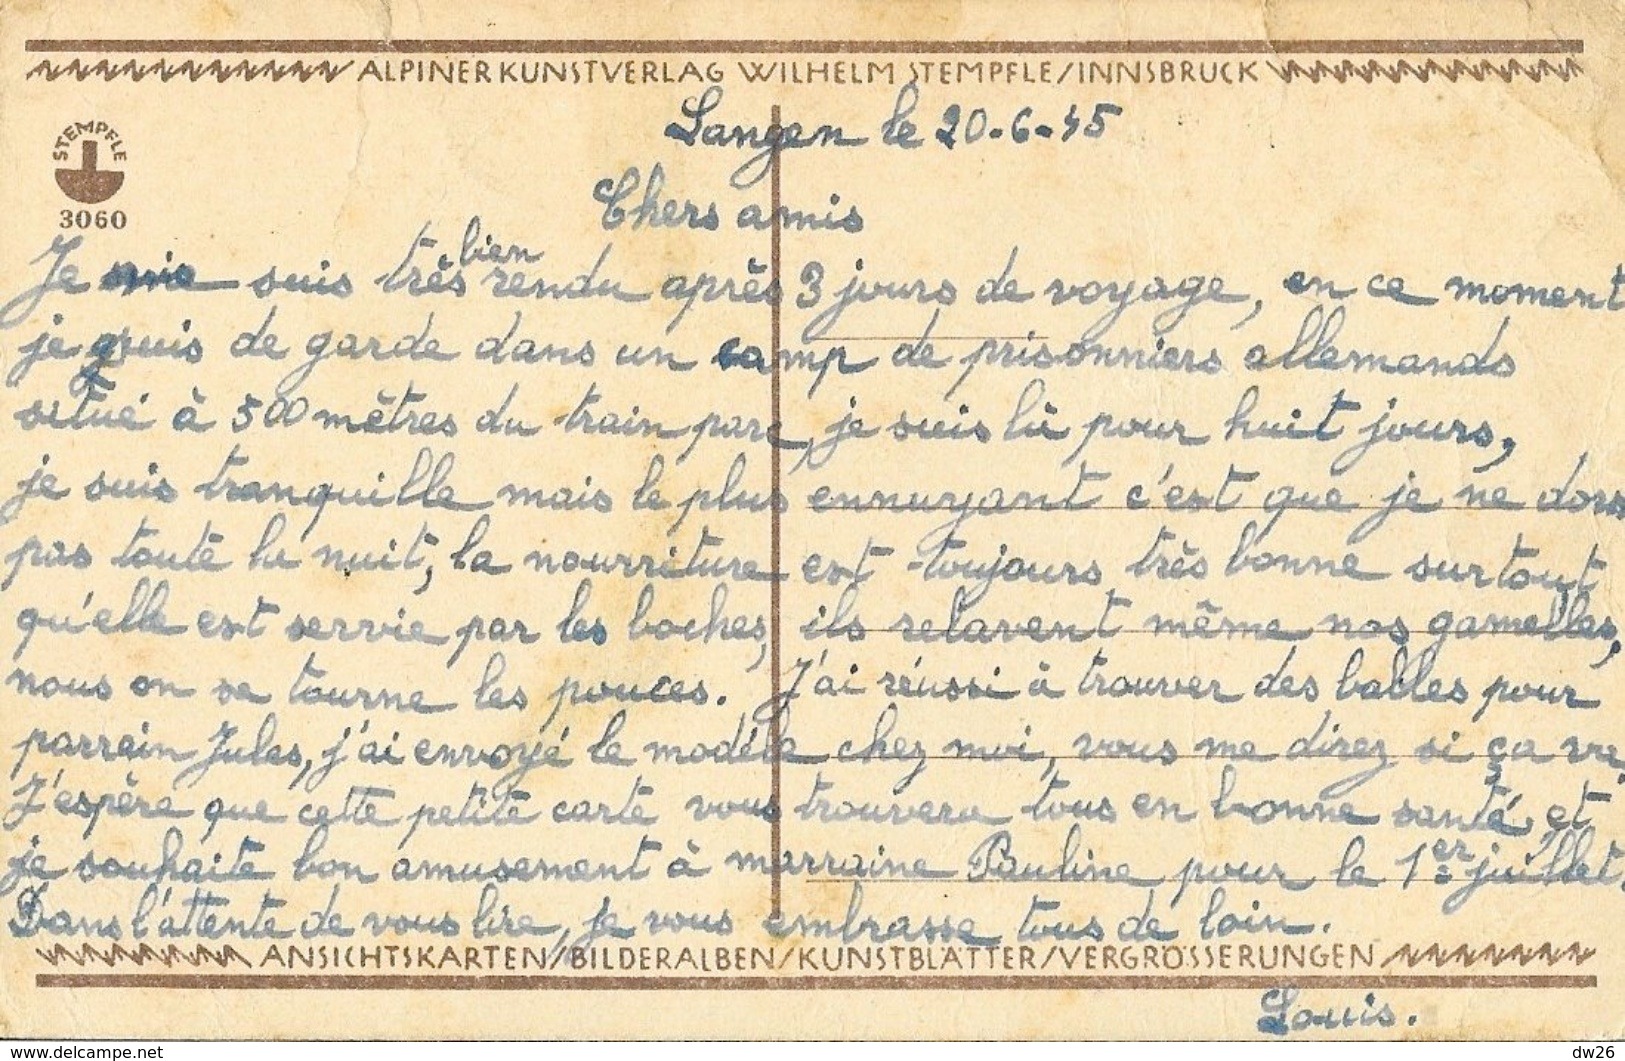 ALPINER KUNSTVERLAG WILHELM STEMPFLE/INNSBRUCK
STEMPFLE
3060
Langen le 20-6-45
Chers amis
Je suis très bien rendu après 3 jours de voyage, en ce moment
je suis de garde dans un camp de prisonniers allemands
situé à 500 mètres du train parc, je suis là pour huit jours,
je suis tranquille mais le plus ennuyant c'est que je ne dors
pas toute la nuit, la nourriture est toujours très bonne surtout
qu'elle est servie par les boches, ils relavent même nos gamelles,
nous on se tourne les pouces. J'ai réussi à trouver des balles pour
parrain Jules, j'ai envoyé le modèle chez moi, vous me direz si ça va.
J'espère que cette petite carte vous trouvera tous en bonne santé, et
je souhaite bon amusement à marraine Pauline pour le 1er juillet.
Dans l'attente de vous lire, je vous embrasse tous de loin.
ANSICHTSKARTEN/BILDERALBEN/KUNSTBLÄTTER/VERGRÖSSERUNGEN
Louis.
delcampe.net
dw26